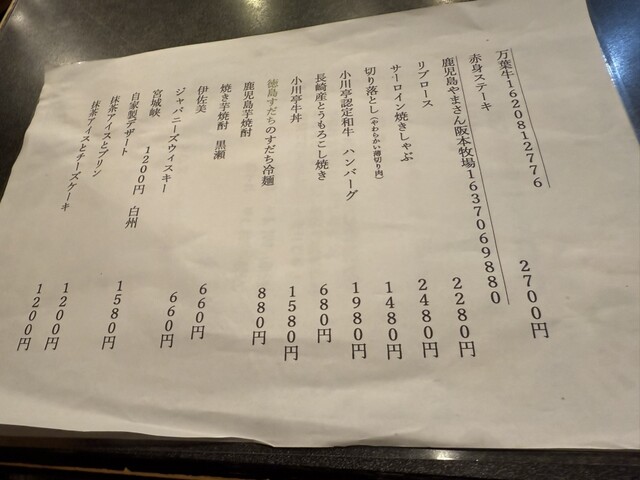 万葉牛1620812776
赤身ステーキ 2700円
鹿児島やまさん阪本牧場1637069880
リブロース 2280円
サーロイン焼きしゃぶ 2480円
切り落とし(やわらかい薄切り肉) 1480円
小川亭認定和牛 ハンバーグ 1980円
長崎産とうもろこし焼き 680円
小川亭牛丼 1580円
徳島すだちのすだち冷麺 880円
鹿児島芋焼酎
焼き芋焼酎 黒瀬 660円
伊佐美 660円
ジャパニーズウィスキー
宮城峡 1200円 白州 1580円
自家製デザート
抹茶アイスとプリン 1200円
抹茶アイスとチーズケーキ 1200円